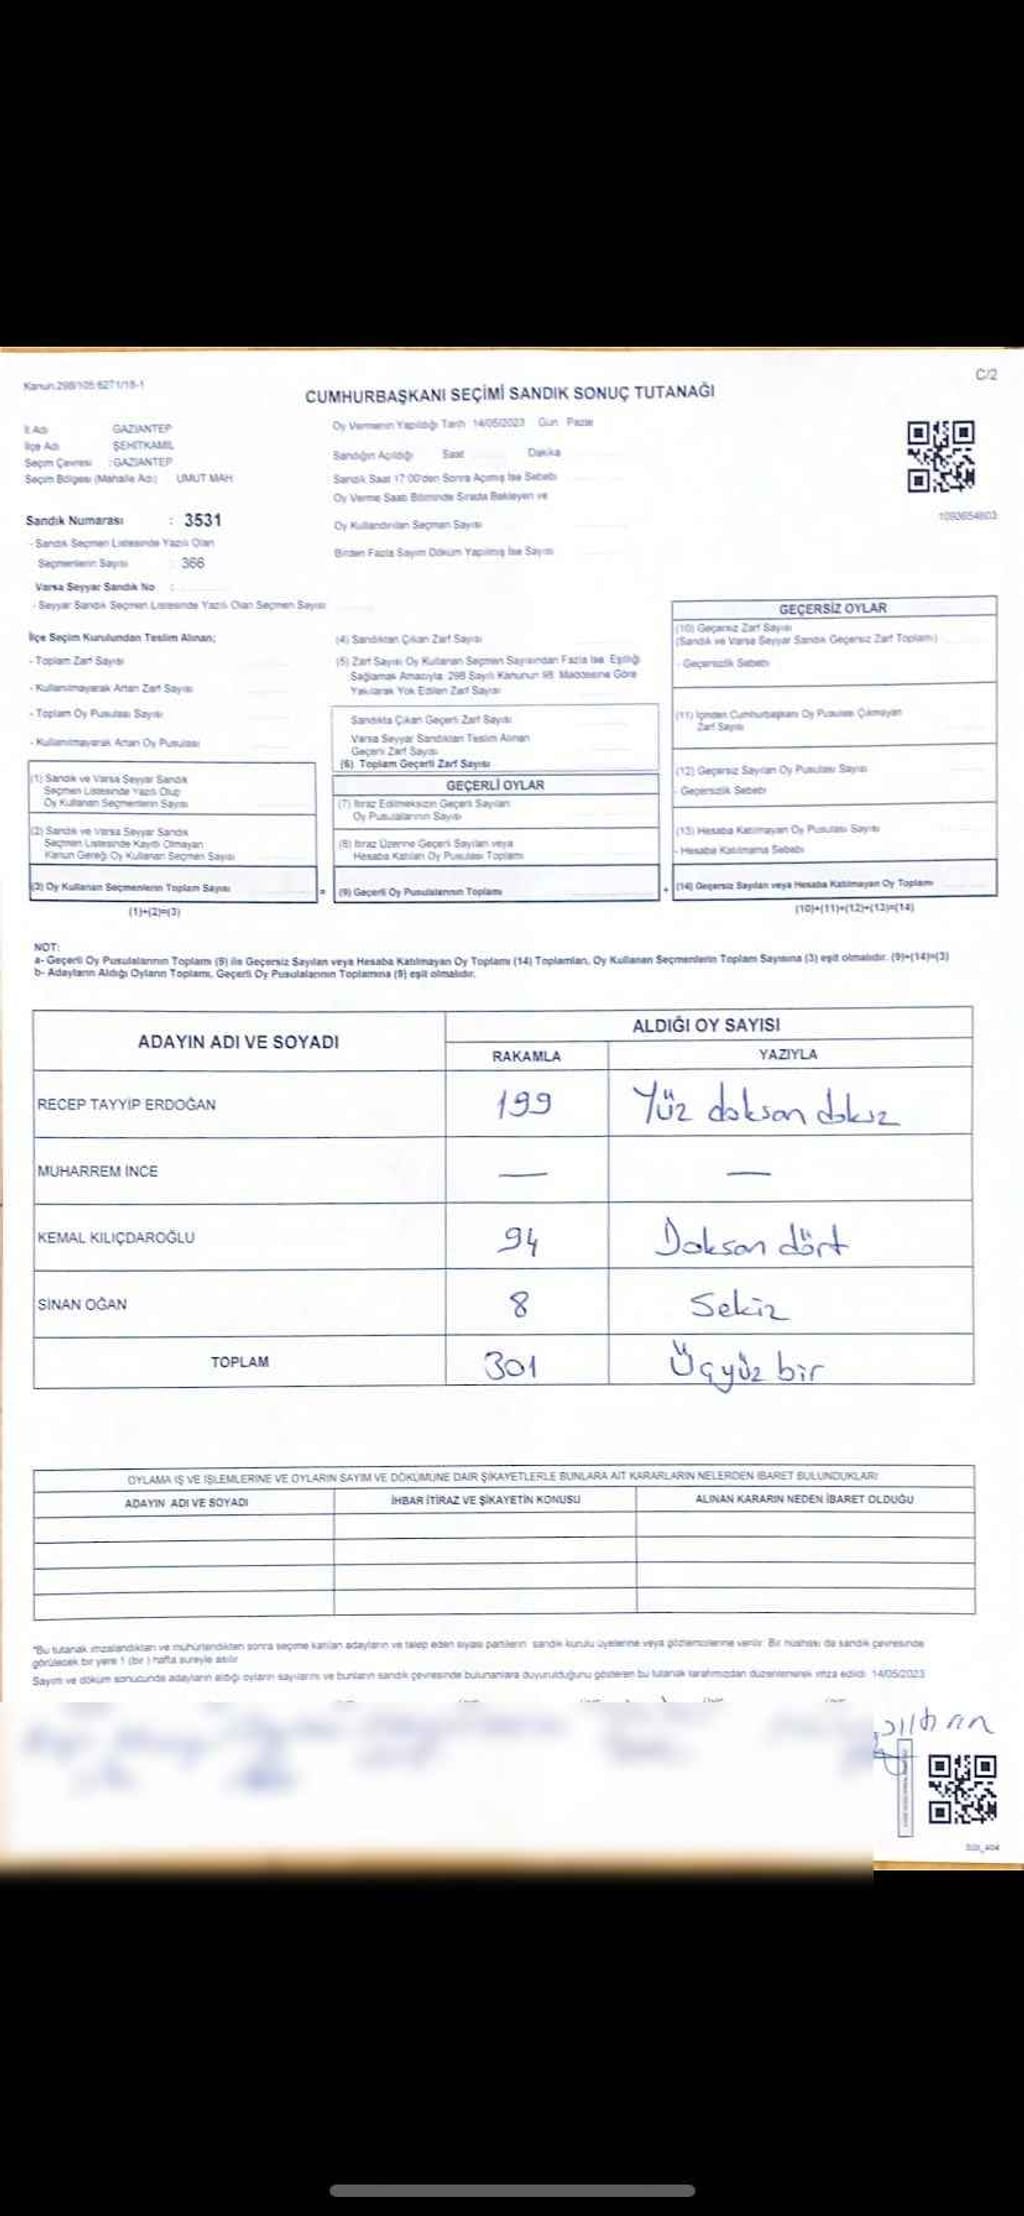 Kanun:298/105 6271/18-1
C/2
CUMHURBAŞKANI SEÇİMİ SANDIK SONUÇ TUTANAĞI
İl Adı GAZİANTEP
İlçe Adı ŞEHİTKAMİL
Seçim Çevresi :GAZİANTEP
Seçim Bölgesi (Mahalle Adı) UMUT MAH
Oy Vermenin Yapıldığı Tarih 14/05/2023 Gün Pazar
Sandığın Açıldığı Saat Dakika
Sandık Saat 17:00'den Sonra Açılmış İse Sebebi
Oy Verme Saati Bitiminde Sırada Bekleyen ve
Oy Kullandırılan Seçmen Sayısı
Birden Fazla Sayım Döküm Yapılmış İse Sayısı
1093654803
Sandık Numarası : 3531
- Sandık Seçmen Listesinde Yazılı Olan
Seçmenlerin Sayısı : 366
Varsa Seyyar Sandık No :
- Seyyar Sandık Seçmen Listesinde Yazılı Olan Seçmen Sayısı
İlçe Seçim Kurulundan Teslim Alınan;
- Toplam Zarf Sayısı
- Kullanılmayarak Artan Zarf Sayısı
- Toplam Oy Pusulası Sayısı
- Kullanılmayarak Artan Oy Pusulası
(1) Sandık ve Varsa Seyyar Sandık
Seçmen Listesinde Yazılı Olup
Oy Kullanan Seçmenlerin Sayısı
(2) Sandık ve Varsa Seyyar Sandık
Seçmen Listesinde Kayıtlı Olmayan
Kanun Gereği Oy Kullanan Seçmen Sayısı
(3) Oy Kullanan Seçmenlerin Toplam Sayısı
(1)+(2)=(3)
(4) Sandıktan Çıkan Zarf Sayısı
(5) Zarf Sayısı Oy Kullanan Seçmen Sayısından Fazla İse, Eşitliği
Sağlamak Amacıyla 298 Sayılı Kanunun 98. Maddesine Göre
Yakılarak Yok Edilen Zarf Sayısı
Sandıkta Çıkan Geçerli Zarf Sayısı
Varsa Seyyar Sandıktan Teslim Alınan
Geçerli Zarf Sayısı
(6) Toplam Geçerli Zarf Sayısı
GEÇERLİ OYLAR
(7) İtiraz Edilmeksizin Geçerli Sayılan
Oy Pusulalarının Sayısı
(8) İtiraz Üzerine Geçerli Sayılan veya
Hesaba Katılan Oy Pusulası Toplamı
= (9) Geçerli Oy Pusulalarının Toplamı
GEÇERSİZ OYLAR
(10) Geçersiz Zarf Sayısı
(Sandık ve Varsa Seyyar Sandık Geçersiz Zarf Toplamı)
- Geçersizlik Sebebi
(11) İçinden Cumhurbaşkanı Oy Pusulası Çıkmayan
Zarf Sayısı
(12) Geçersiz Sayılan Oy Pusulası Sayısı
- Geçersizlik Sebebi
(13) Hesaba Katılmayan Oy Pusulası Sayısı
- Hesaba Katılmama Sebebi
+ (14) Geçersiz Sayılan veya Hesaba Katılmayan Oy Toplamı
(10)+(11)+(12)+(13)=(14)
NOT:
a- Geçerli Oy Pusulalarının Toplamı (9) ile Geçersiz Sayılan veya Hesaba Katılmayan Oy Toplamı (14) Toplamları, Oy Kullanan Seçmenlerin Toplam Sayısına (3) eşit olmalıdır. (9)+(14)=(3)
b- Adayların Aldığı Oyların Toplamı, Geçerli Oy Pusulalarının Toplamına (9) eşit olmalıdır.
ADAYIN ADI VE SOYADI ALDIĞI OY SAYISI
RAKAMLA YAZIYLA
RECEP TAYYİP ERDOĞAN 199 Yüz doksan dokuz
MUHARREM İNCE — —
KEMAL KILIÇDAROĞLU 94 Doksan dört
SİNAN OĞAN 8 Sekiz
TOPLAM 301 Üçyüz bir
OYLAMA İŞ VE İŞLEMLERİNE VE OYLARIN SAYIM VE DÖKÜMÜNE DAİR ŞİKAYETLERLE BUNLARA AİT KARARLARIN NELERDEN İBARET BULUNDUKLARI
ADAYIN ADI VE SOYADI İHBAR İTİRAZ VE ŞİKAYETİN KONUSU ALINAN KARARIN NEDEN İBARET OLDUĞU
*Bu tutanak imzalandıktan ve mühürlendikten sonra seçime katılan adayların ve talep eden siyasi partilerin sandık kurulu üyelerine veya gözlemcilerine verilir. Bir nüshası da sandık çevresinde
görülecek bir yere 1 (bir) hafta süreyle asılır
Sayım ve döküm sonucunda adayların aldığı oyların sayılarını ve bunların sandık çevresinde bulunanlara duyurulduğunu gösteren bu tutanak tarafımızdan düzenlenerek imza edildi. 14/05/2023